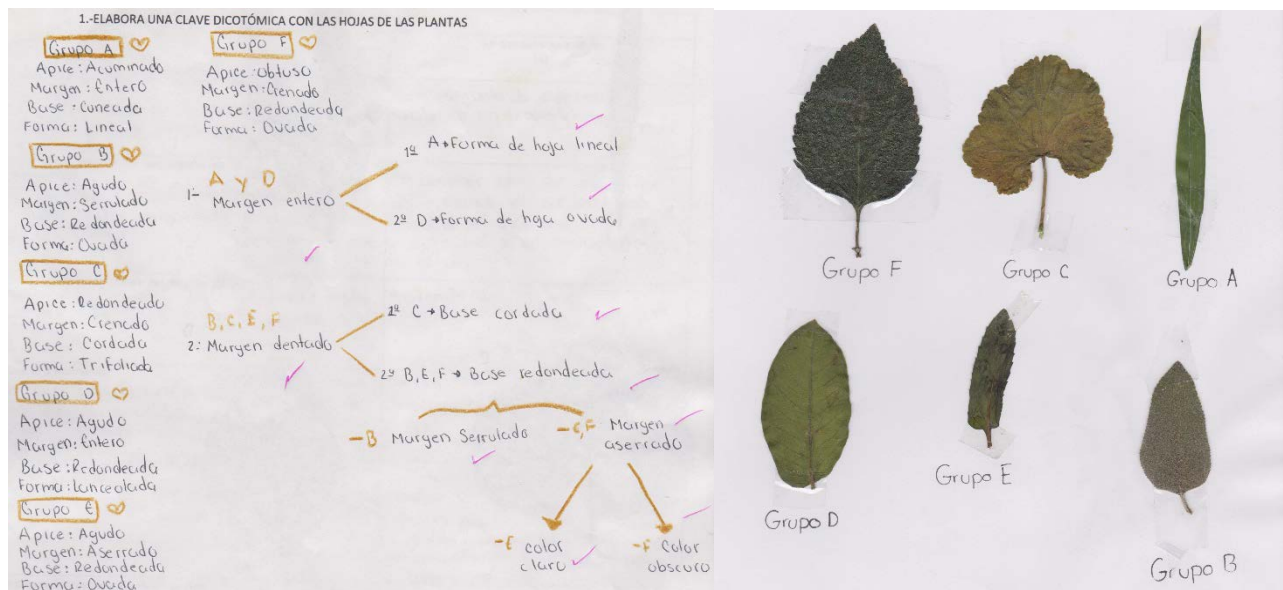 1.-ELABORA UNA CLAVE DICOTÓMICA CON LAS HOJAS DE LAS PLANTAS
Grupo A
Apice: Acuminado
Margen: Entero
Base: Cuneada
Forma: Lineal
Grupo F
Apice: Obtuso
Margen: Crenado
Base: Redondeada
Forma: Ovada
Grupo B
Apice: Agudo
Margen: Serrulado
Base: Redondeada
Forma: Ovada
Grupo C
Apice: Redondeado
Margen: Crenado
Base: Cordada
Forma: Trifoliada
Grupo D
Apice: Agudo
Margen: Entero
Base: Redondeada
Forma: Lanceolada
Grupo E
Apice: Agudo
Margen: Aserrado
Base: Redondeada
Forma: Ovada
A y D
1- Margen entero
1º A→Forma de hoja lineal
2º D→Forma de hoja ovada
B, C, E, F
2: Margen dentado
1º C → Base cordada
2º B, E, F → Base redondeada
-B Margen Serrulado
-E,F Margen
aserrado
-E color
claro
-F Color
obscuro
Grupo F
Grupo C
Grupo A
Grupo D
Grupo E
Grupo B